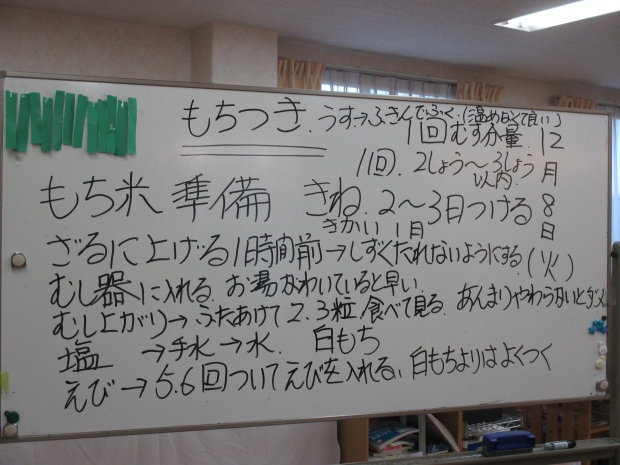 もちつき.うす→ふきんでふく.(温めなくて良い)
1回むす分量.
1回.2しょう〜3しょう以内.
12月8日(火)
もち米 準備 きね.2〜3日つける
きかい 1月
ざるに上げる1時間前→しずくたれないようにする.
むし器に入れる.お湯がわいていると早い.
むし上がり→ふたあけて2.3粒食べて見る.あんまりやわらかいと
塩 →手水→水. 白もち
えび→5.6回ついてえびを入れる、白もちよりはよくつく